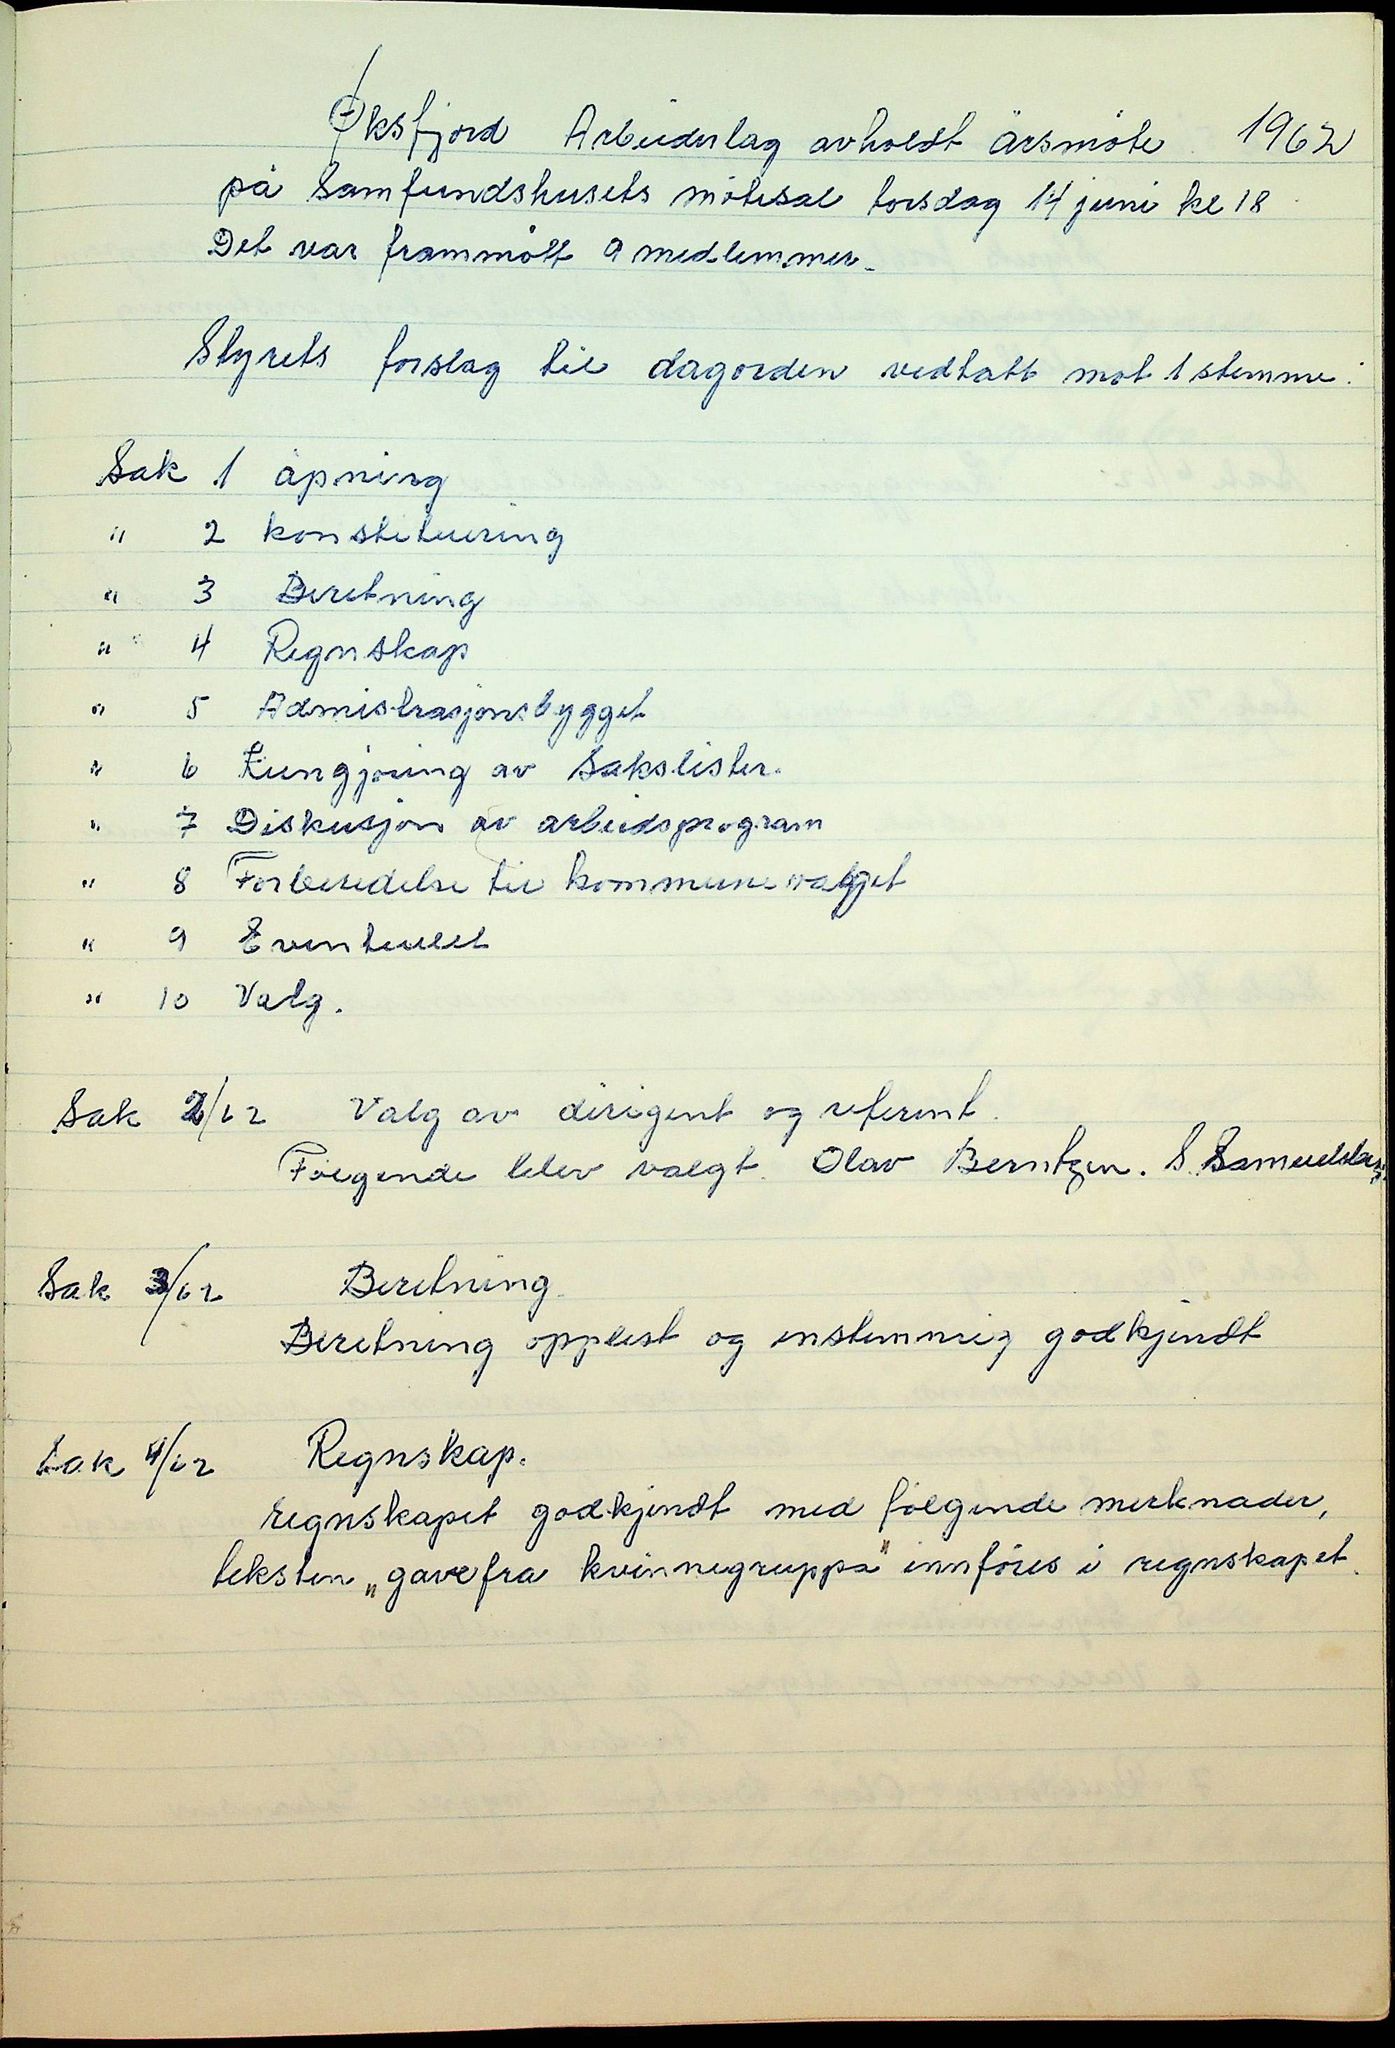 Øksfjord Arbeiderlag avholdt årsmöte 1962
på Samfundshusets mötesal torsdag 14 juni kl 18
Det var frammött 9 medlemmer.
Styrets forslag til dagorden vedtatt mot 1 stemme.
Sak 1 åpning
" 2 konstituering
" 3 Beretning
" 4 Regnskap
" 5 Admistrasjonsbygget
" 6 Kungjöring av Sakslister.
" 7 Diskusjon av arbeidsprogram
" 8 Forberedelse til kommunevalget
" 9 Eventuelt
" 10 Valg.
Sak 2/62 Valg av dirigent og referent.
Fölgende blev valgt. Olav Berntzen. S. Samuelsen
Sak 3/62 Beretning.
Beretning opplest og enstemmig godkjendt
Sak 4/62 Regnskap.
regnskapet godkjendt med fölgende merknader,
teksten „gave fra kvinnegruppa" innföres i regnskapet.